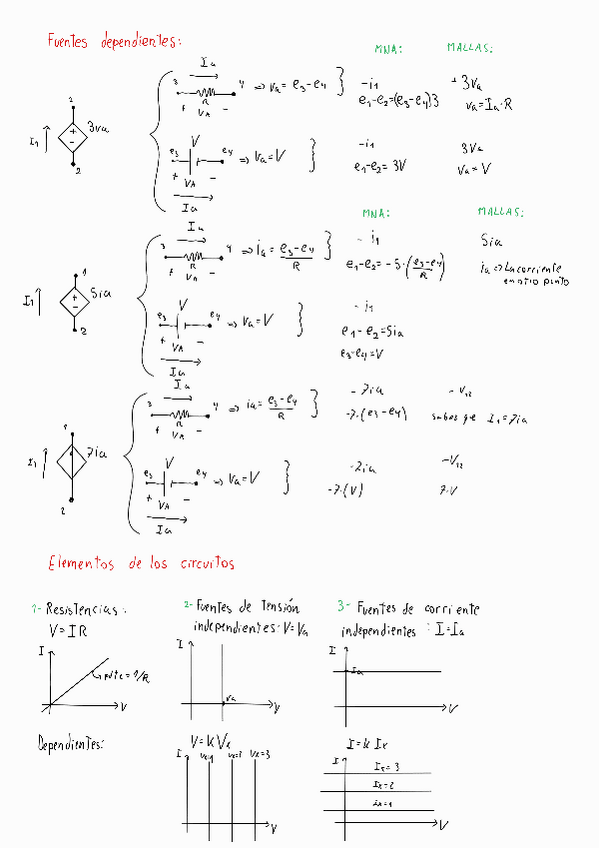 Fuentes dependientes:
MNA: MALLAS:
Ia
3 R 4 => va = e3-e4
+ va -
-i1
e1-e2=(e3-e4)3
+ 3va
va=Ia·R
1
I1 3va
2
V
e3 e4 => va=V
+ VA -
Ia
-i1
e1-e2= 3V
3va
va=V
MNA: MALLAS:
Ia
3 R 4 => ia= e3-e4/R
+ VA -
-i1
e1-e2= -5·(e3-e4/R)
5ia
ia => La corriente
en otro punto
1
I1 5ia
2
V
e3 e4 => va=V
+ VA -
Ia
-i1
e1-e2=5ia
e3-e4=V
Ia
3 R 4 => ia= e3-e4/R
+ VA -
-7ia
-7·(e3-e4)
-V12
sabes que I1=7ia
1
I1 7ia
2
V
e3 e4 => va=V
+ VA -
Ia
-7ia
-7·(V)
-V12
7·V
Elementos de los circuitos
1- Resistencias:
V=IR
I
pdte=1/R
V
2- Fuentes de Tensión
independientes: V=Va
I
va
V
3- Fuentes de corriente
independientes: I=Ia
I
Ia
V
Dependientes:
V=kVx
I vx=3
V
I=k Ix
I
Ix=3
Ix=2
ix=1
V